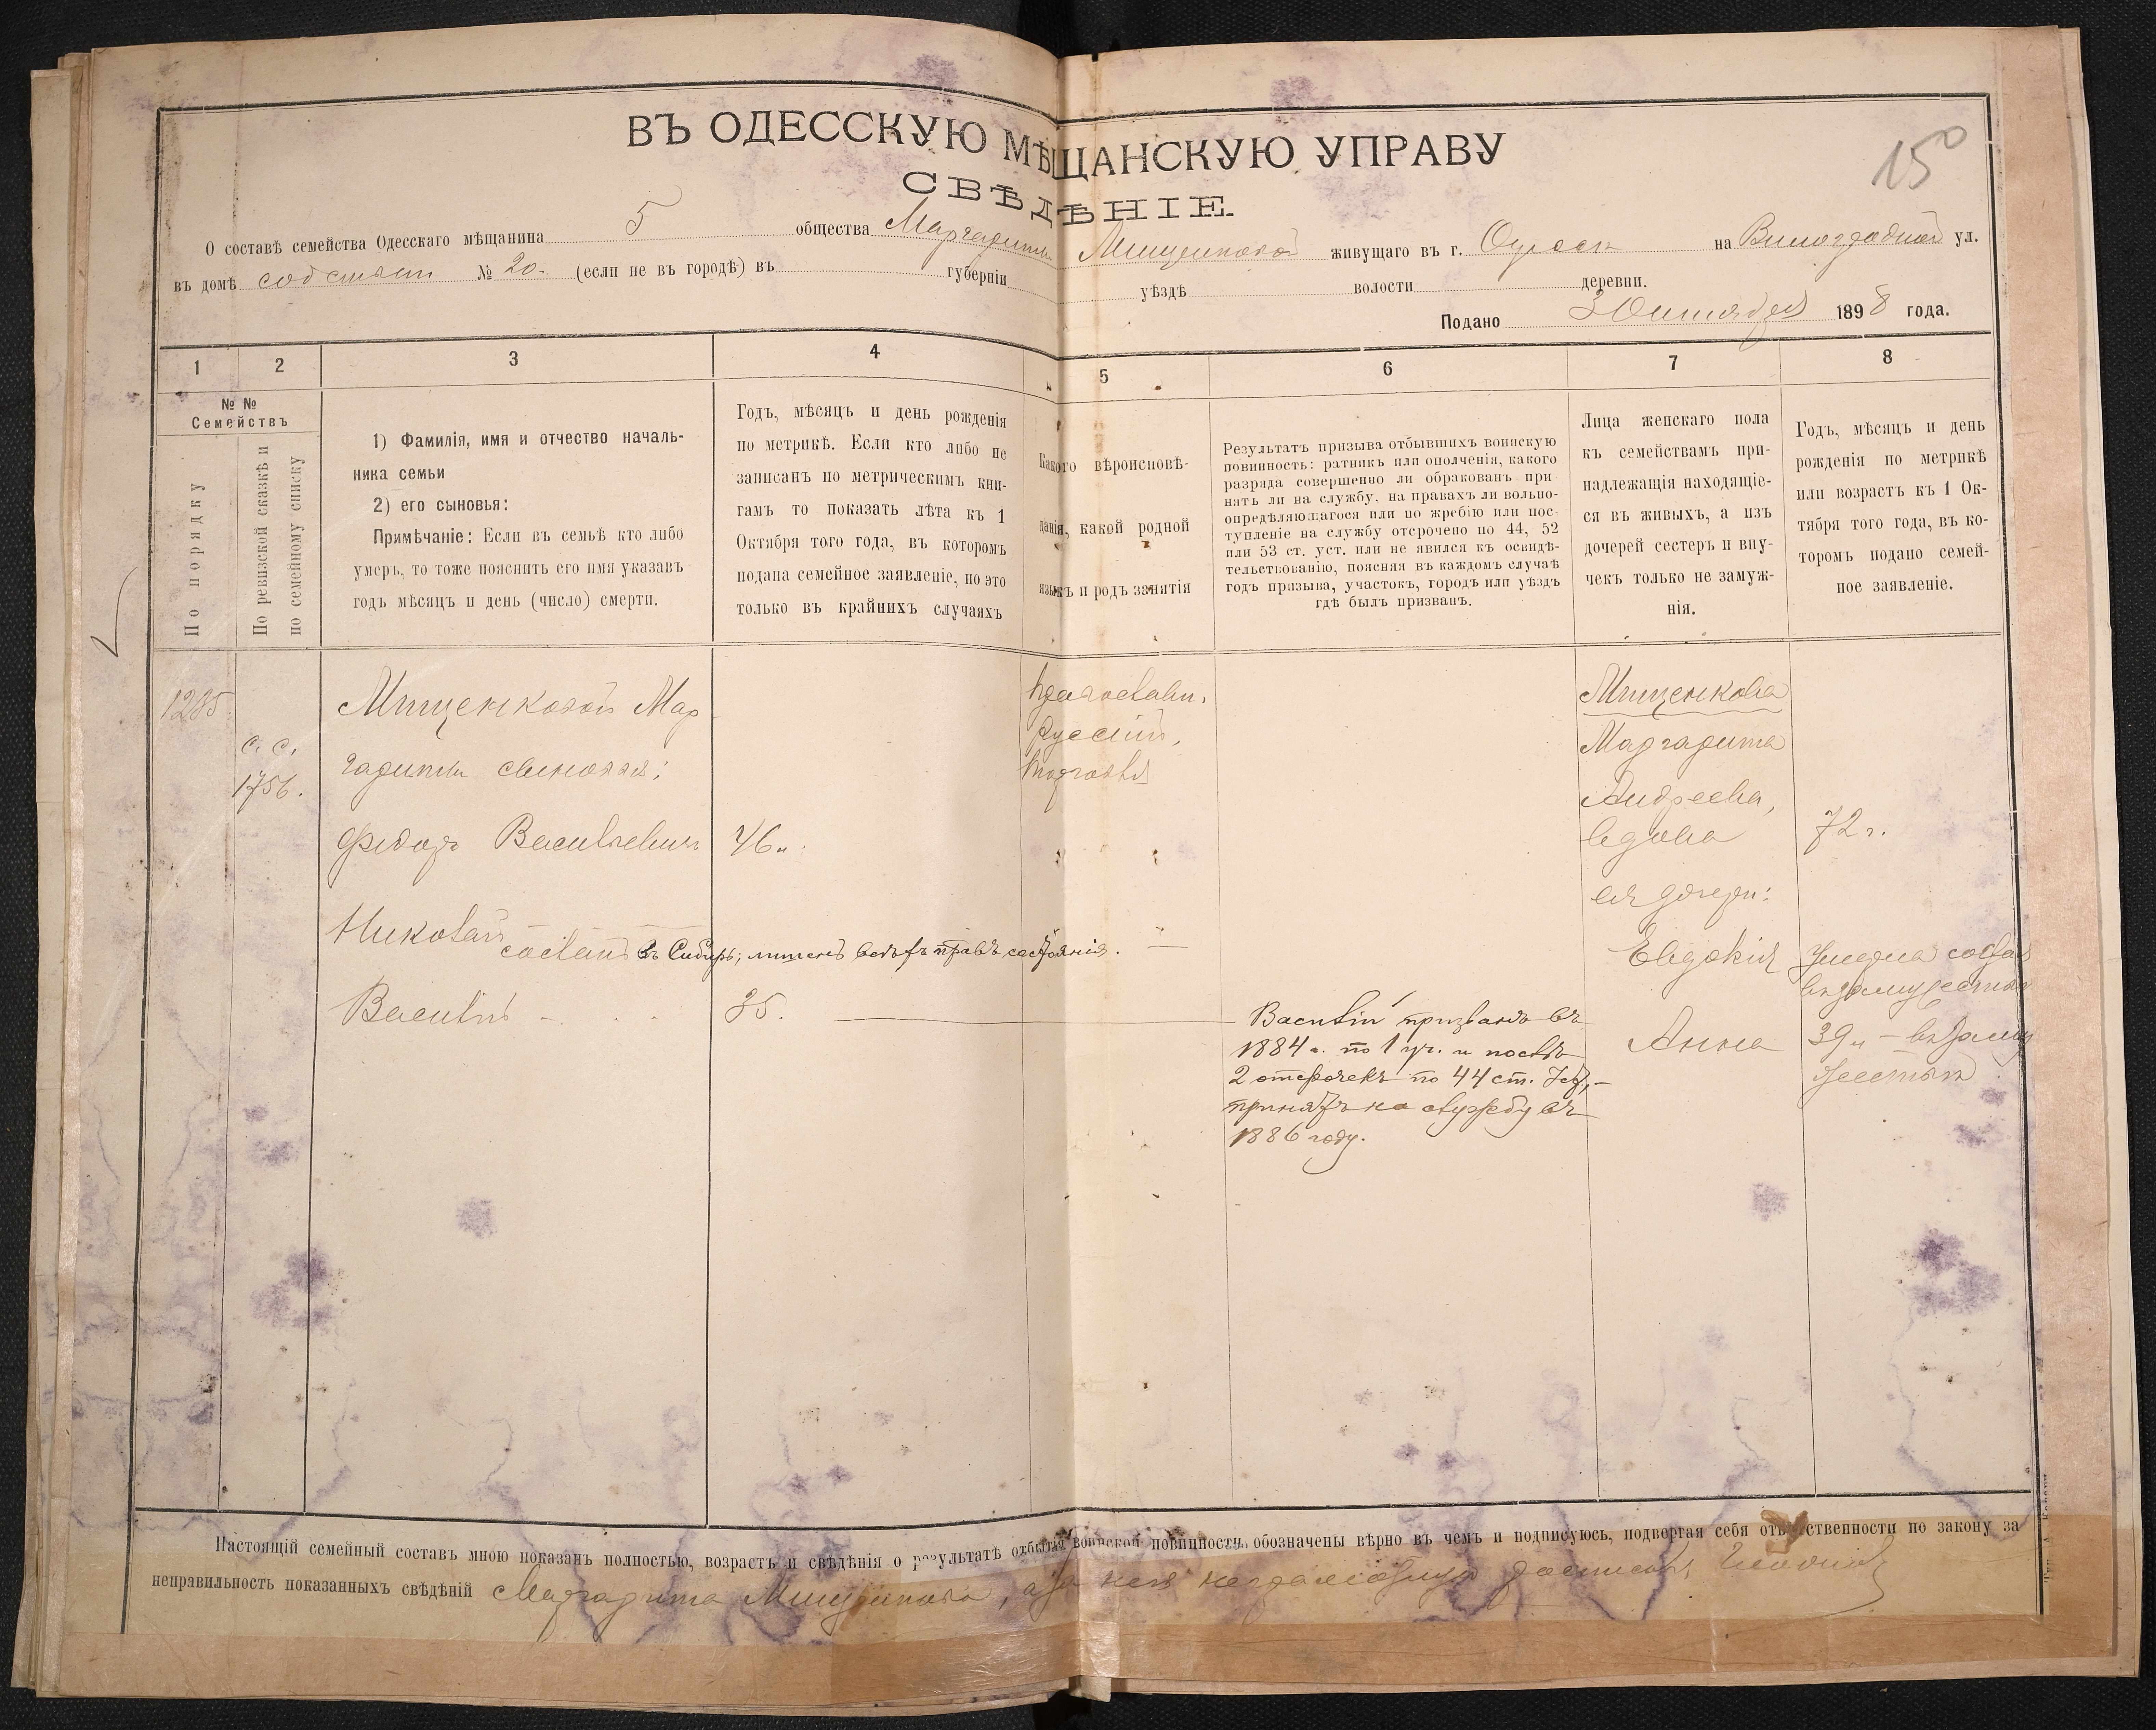 ВЪ ОДЕССКУЮ МѢЩАНСКУЮ УПРАВУ
150
СВѢДѢНІЕ.
О составѣ семейства Одесскаго мѣщанина 5 общества Маргариты Мищенковой живущаго въ г. Одессѣ на Виноградной ул.
въ домѣ собствен № 20. (если не въ городѣ) въ губерніи уѣздѣ волости деревни.
Подано 3 Октября 1898 года.
1 2 3 4 5 6 7 8
№ №
Семействъ
По порядку
По ревизской сказкѣ и
по семейному списку
1) Фамилія, имя и отчество началь-
ника семьи
2) его сыновья:
Примѣчаніе: Если въ семьѣ кто либо
умеръ, то тоже пояснить его имя указавъ
годъ мѣсяцъ и день (число) смерти.
Годъ, мѣсяцъ и день рожденія
по метрикѣ. Если кто либо не
записанъ по метрическимъ кни-
гамъ то показать лѣта къ 1
Октября того года, въ которомъ
подана семейное заявленіе, но это
только въ крайнихъ случаяхъ
Какого вѣроисповѣ-
данія, какой родной
языкъ и родъ занятія
Результатъ призыва отбывшихъ воинскую
повинность: ратникъ или ополченія, какого
разряда совершенно ли обракованъ при-
нятъ ли на службу, на правахъ ли вольно-
опредѣляющагося или по жребію или пос-
тупленіе на службу отсрочено по 44, 52
или 53 ст. уст. или не явился къ освидѣ-
тельствованію, поясняя въ каждомъ случаѣ
годъ призыва, участокъ, городъ или уѣздъ
гдѣ былъ призванъ.
Лица женскаго пола
къ семействамъ при-
надлежащія находящіе-
ся въ живыхъ, а изъ
дочерей сестеръ и вну-
чекъ только не замуж-
нія.
Годъ, мѣсяцъ и день
рожденія по метрикѣ
или возрастъ къ 1 Ок-
тября того года, въ ко-
торомъ подано семей-
ное заявленіе.
1285
с. с.
1756.
Мищенковой Мар
гариты сыновья:
Федоръ Васильевичъ 46 "
Николай сосланъ въ Сибирь; лишенъ всѣхъ правъ состоянія.
Василій - . . 35.
Православн.
Русскій,
торговля
Василій призванъ въ
1884 г. по 1 уч. и послѣ
2 отсрочекъ по 44 ст. Уст,
принятъ на службу въ
1886 году.
Мищенкова
Маргарита
Андреева,
вдова 72 г.
ея дочери:
Евдокія
Умерла
въ замужествѣ
Анна
39 " - въ заму
жествѣ
Настоящій семейный составъ мною показанъ полностью, возрастъ и свѣдѣнія о результатѣ отбытія воинской повинности, обозначены вѣрно въ чемъ и подписуюсь, подвергая себя отвѣтственности по закону за
неправильность показанныхъ свѣдѣній Маргарита Мищенкова, а за нея неграмотную